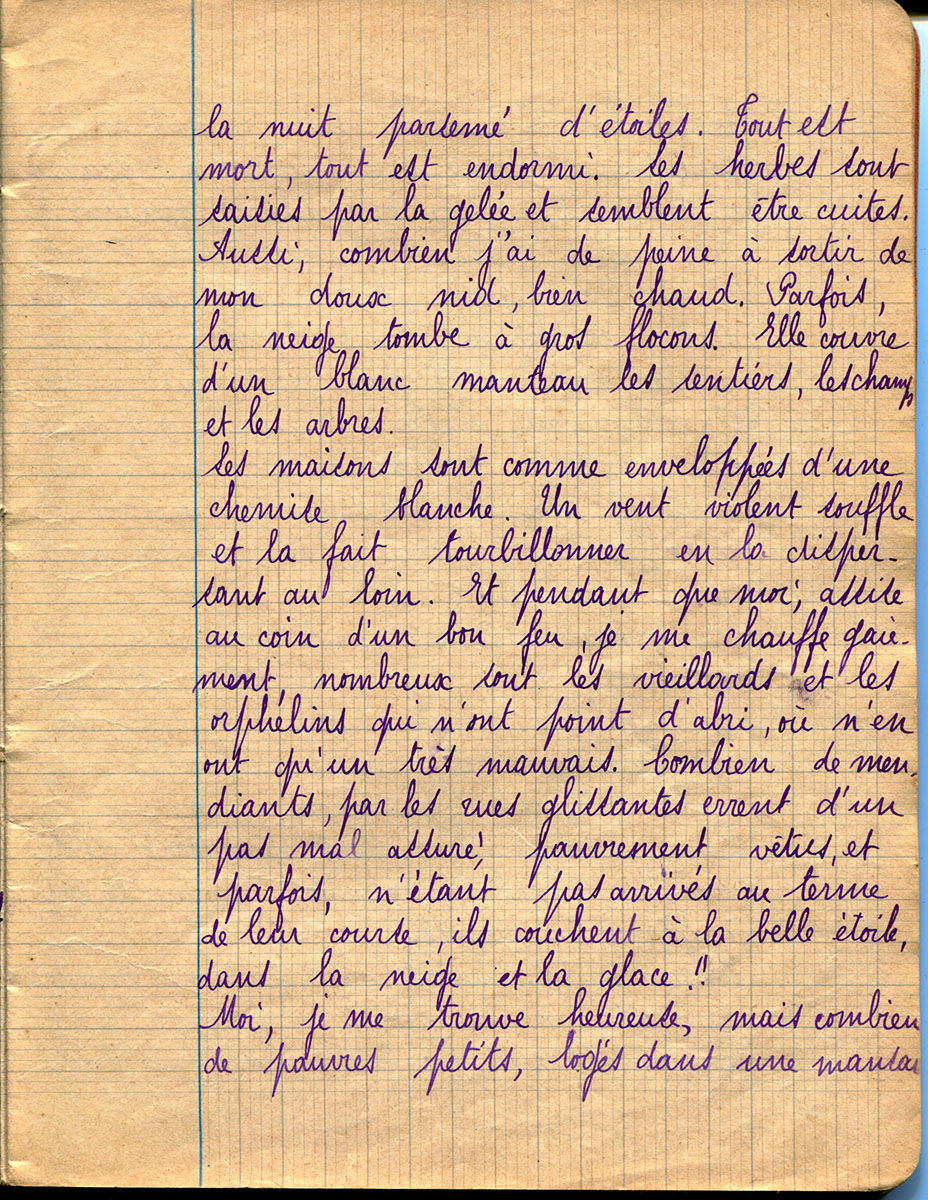 la nuit parsemé d'étoiles. Tout est
mort, tout est endormi. Les herbes sont
saisies par la gelée et semblent être cuites.
Aussi, combien j'ai de peine à sortir de
mon doux nid, bien chaud. Parfois,
la neige tombe à gros flocons. Elle couvre
d'un blanc manteau les sentiers, les champs
et les arbres.
Les maisons sont comme enveloppées d'une
chemise blanche. Un vent violent souffle
et la fait tourbillonner en la disper-
sant au loin. Et pendant que moi, assise
au coin d'un bon feu, je me chauffe gaie-
ment, nombreux sont les vieillards et les
orphelins qui n'ont point d'abri, où n'en
ont qu'un très mauvais. Combien de men-
diants, par les rues glissantes errent d'un
pas mal assuré, pauvrement vêtus, et
parfois, n'étant pas arrivés au terme
de leur course, ils couchent à la belle étoile,
dans la neige et la glace !!
Moi, je me trouve heureuse, mais combien
de pauvres petits, logés dans une mansar